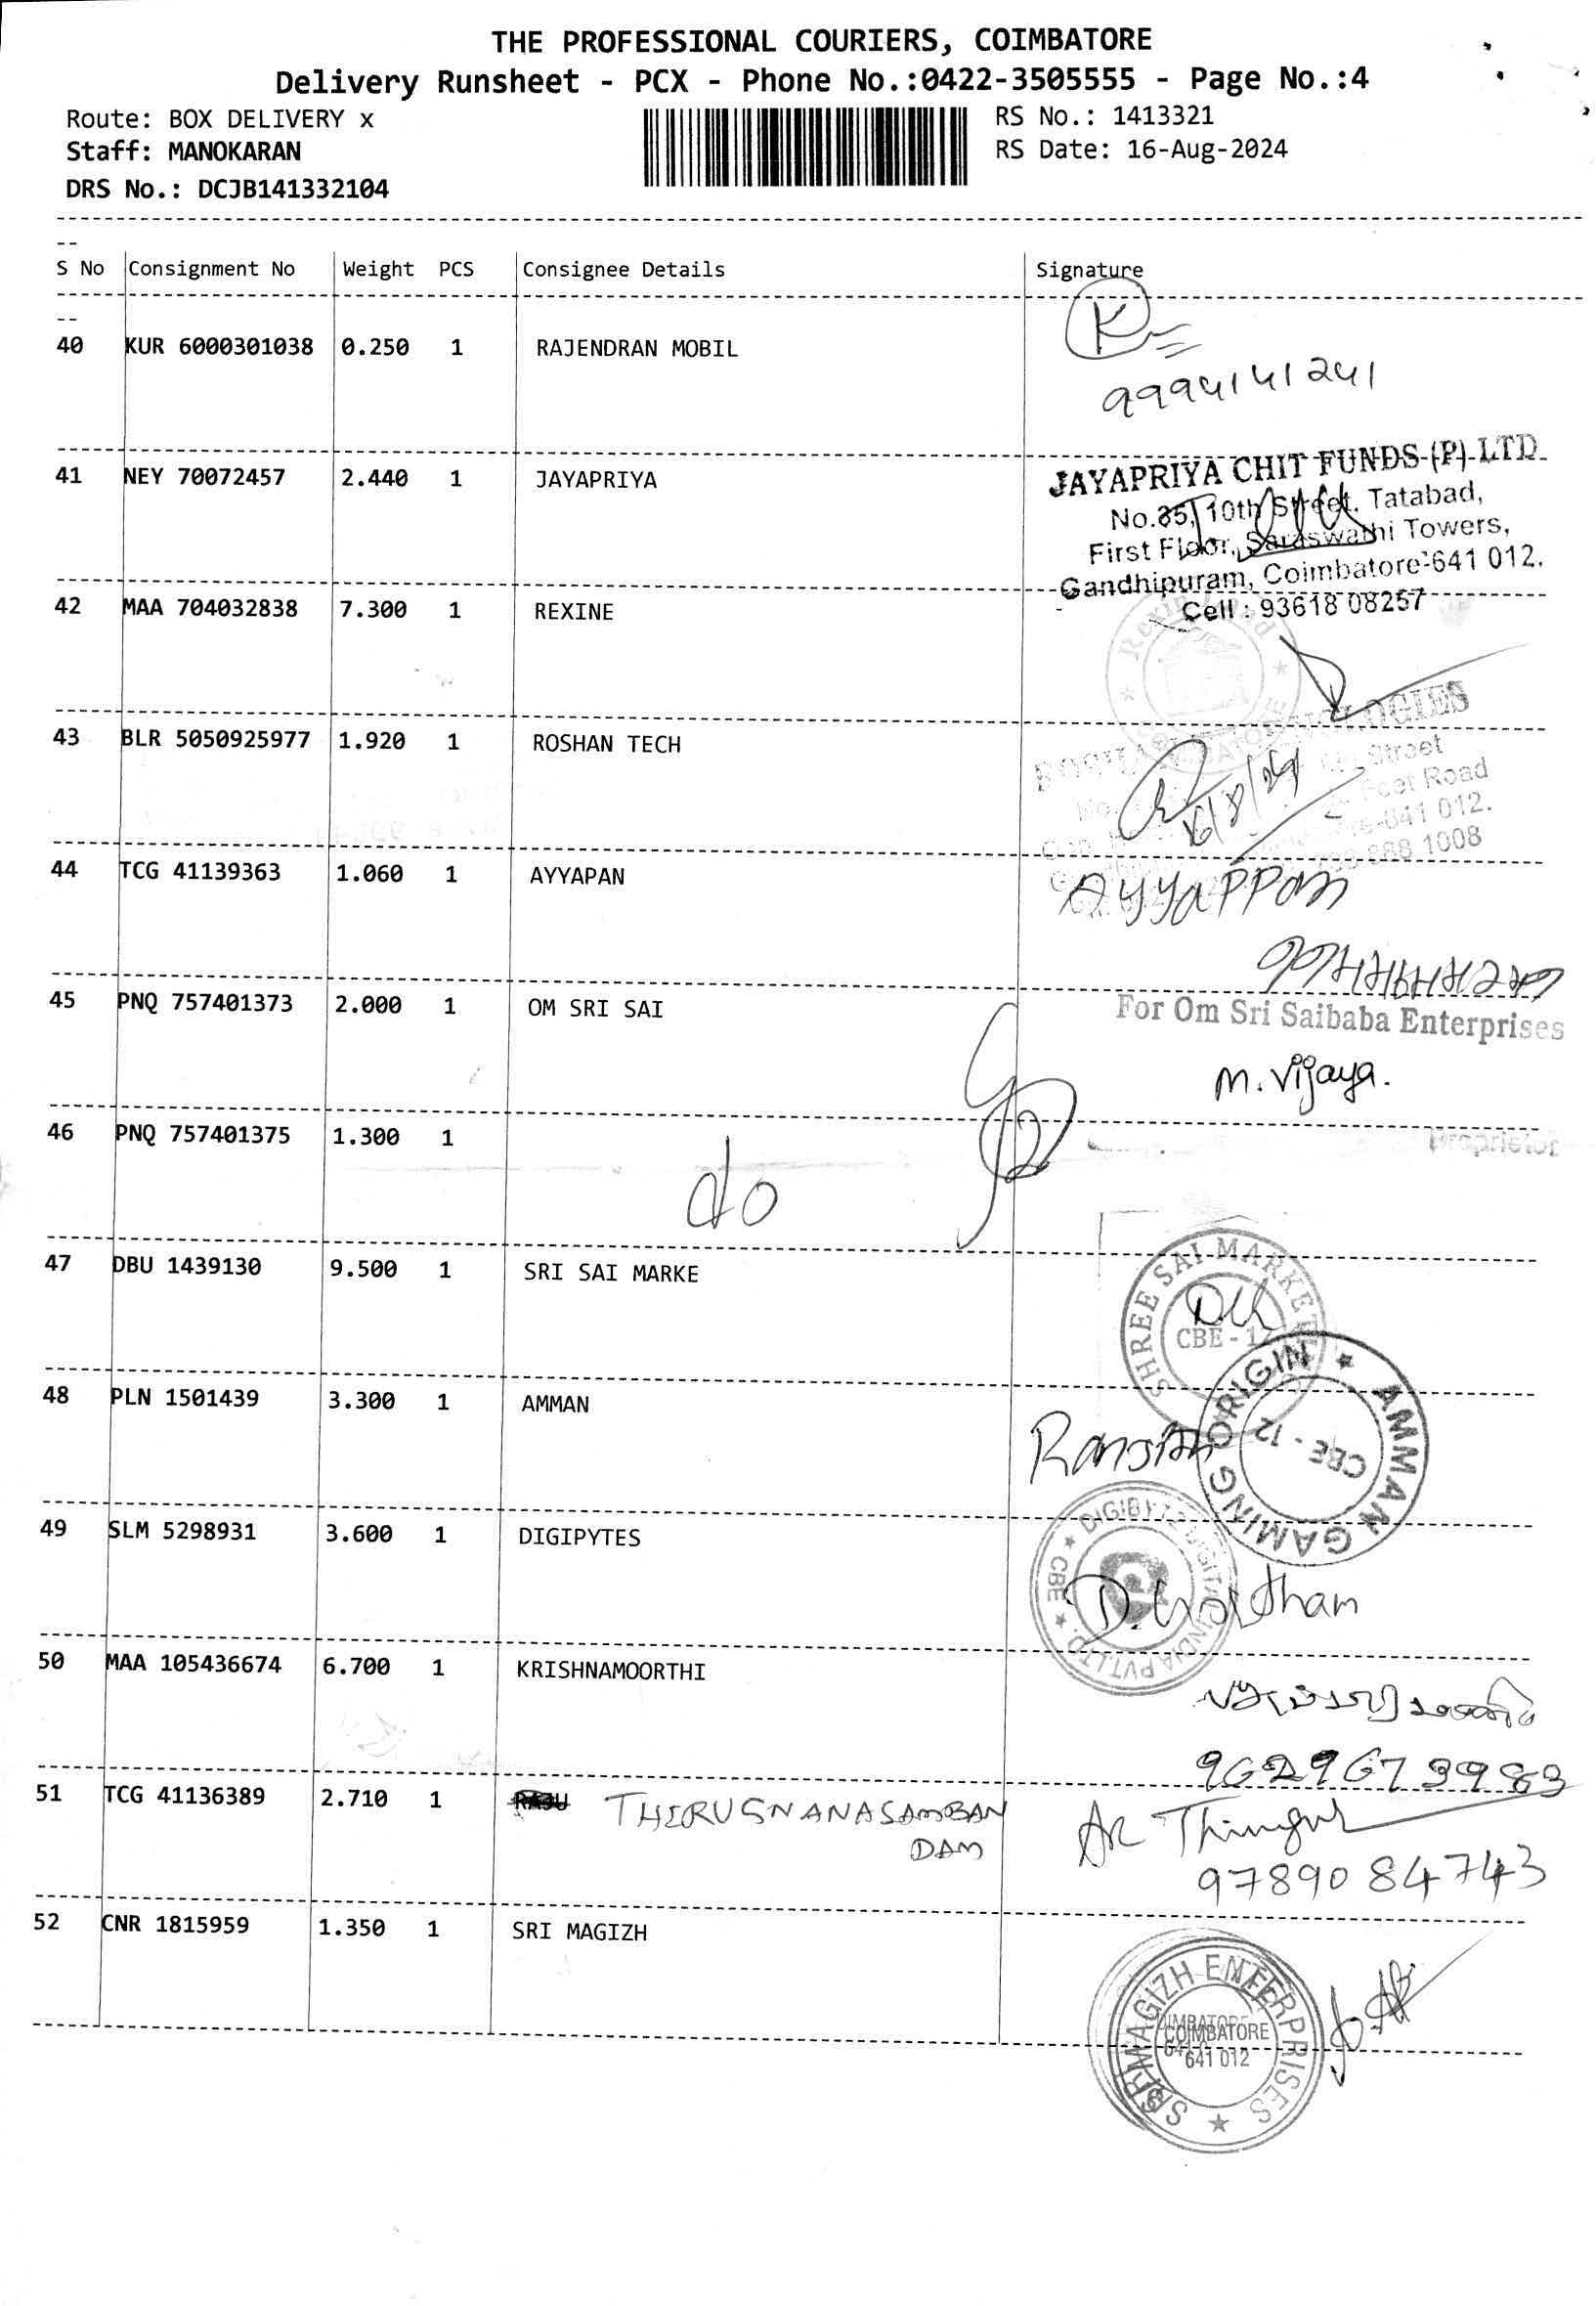 THE PROFESSIONAL COURIERS, COIMBATORE
Delivery Runsheet - PCX - Phone No.:0422-3505555 - Page No.:4
Route: BOX DELIVERY x
Staff: MANOKARAN
DRS No.: DCJB141332104
RS No.: 1413321
RS Date: 16-Aug-2024
S No Consignment No Weight PCS Consignee Details Signature
40 KUR 6000301038 0.250 1 RAJENDRAN MOBIL
K
9994141241
41 NEY 70072457 2.440 1 JAYAPRIYA
JAYAPRIYA CHIT FUNDS (P) LTD.
No.35, 10th Street, Tatabad,
First Floor, Saraswathi Towers,
Gandhipuram, Coimbatore-641 012.
Cell : 93618 08257
42 MAA 704032838 7.300 1 REXINE
43 BLR 5050925977 1.920 1 ROSHAN TECH
Street
Feet Road
-641 012.
888 1008
16/8/24
44 TCG 41139363 1.060 1 AYYAPAN
Ayyappan
45 PNQ 757401373 2.000 1 OM SRI SAI
For Om Sri Saibaba Enterprises
M. Vijaya.
Proprietor
46 PNQ 757401375 1.300 1
do
47 DBU 1439130 9.500 1 SRI SAI MARKE
SHREE SAI MARKE
CBE - 12
48 PLN 1501439 3.300 1 AMMAN
Ranjith
AMMAN GAMING ORIGIN
CBE - 12
49 SLM 5298931 3.600 1 DIGIPYTES
DIGIBYTE DIGITAL INDIA PVT.LTD.
CBE
50 MAA 105436674 6.700 1 KRISHNAMOORTHI
9629673983
51 TCG 41136389 2.710 1 THIRUGNANASAMBAN
DAM
9789084743
52 CNR 1815959 1.350 1 SRI MAGIZH
SRI MAGIZH ENTERPRISES
COIMBATORE
641 012